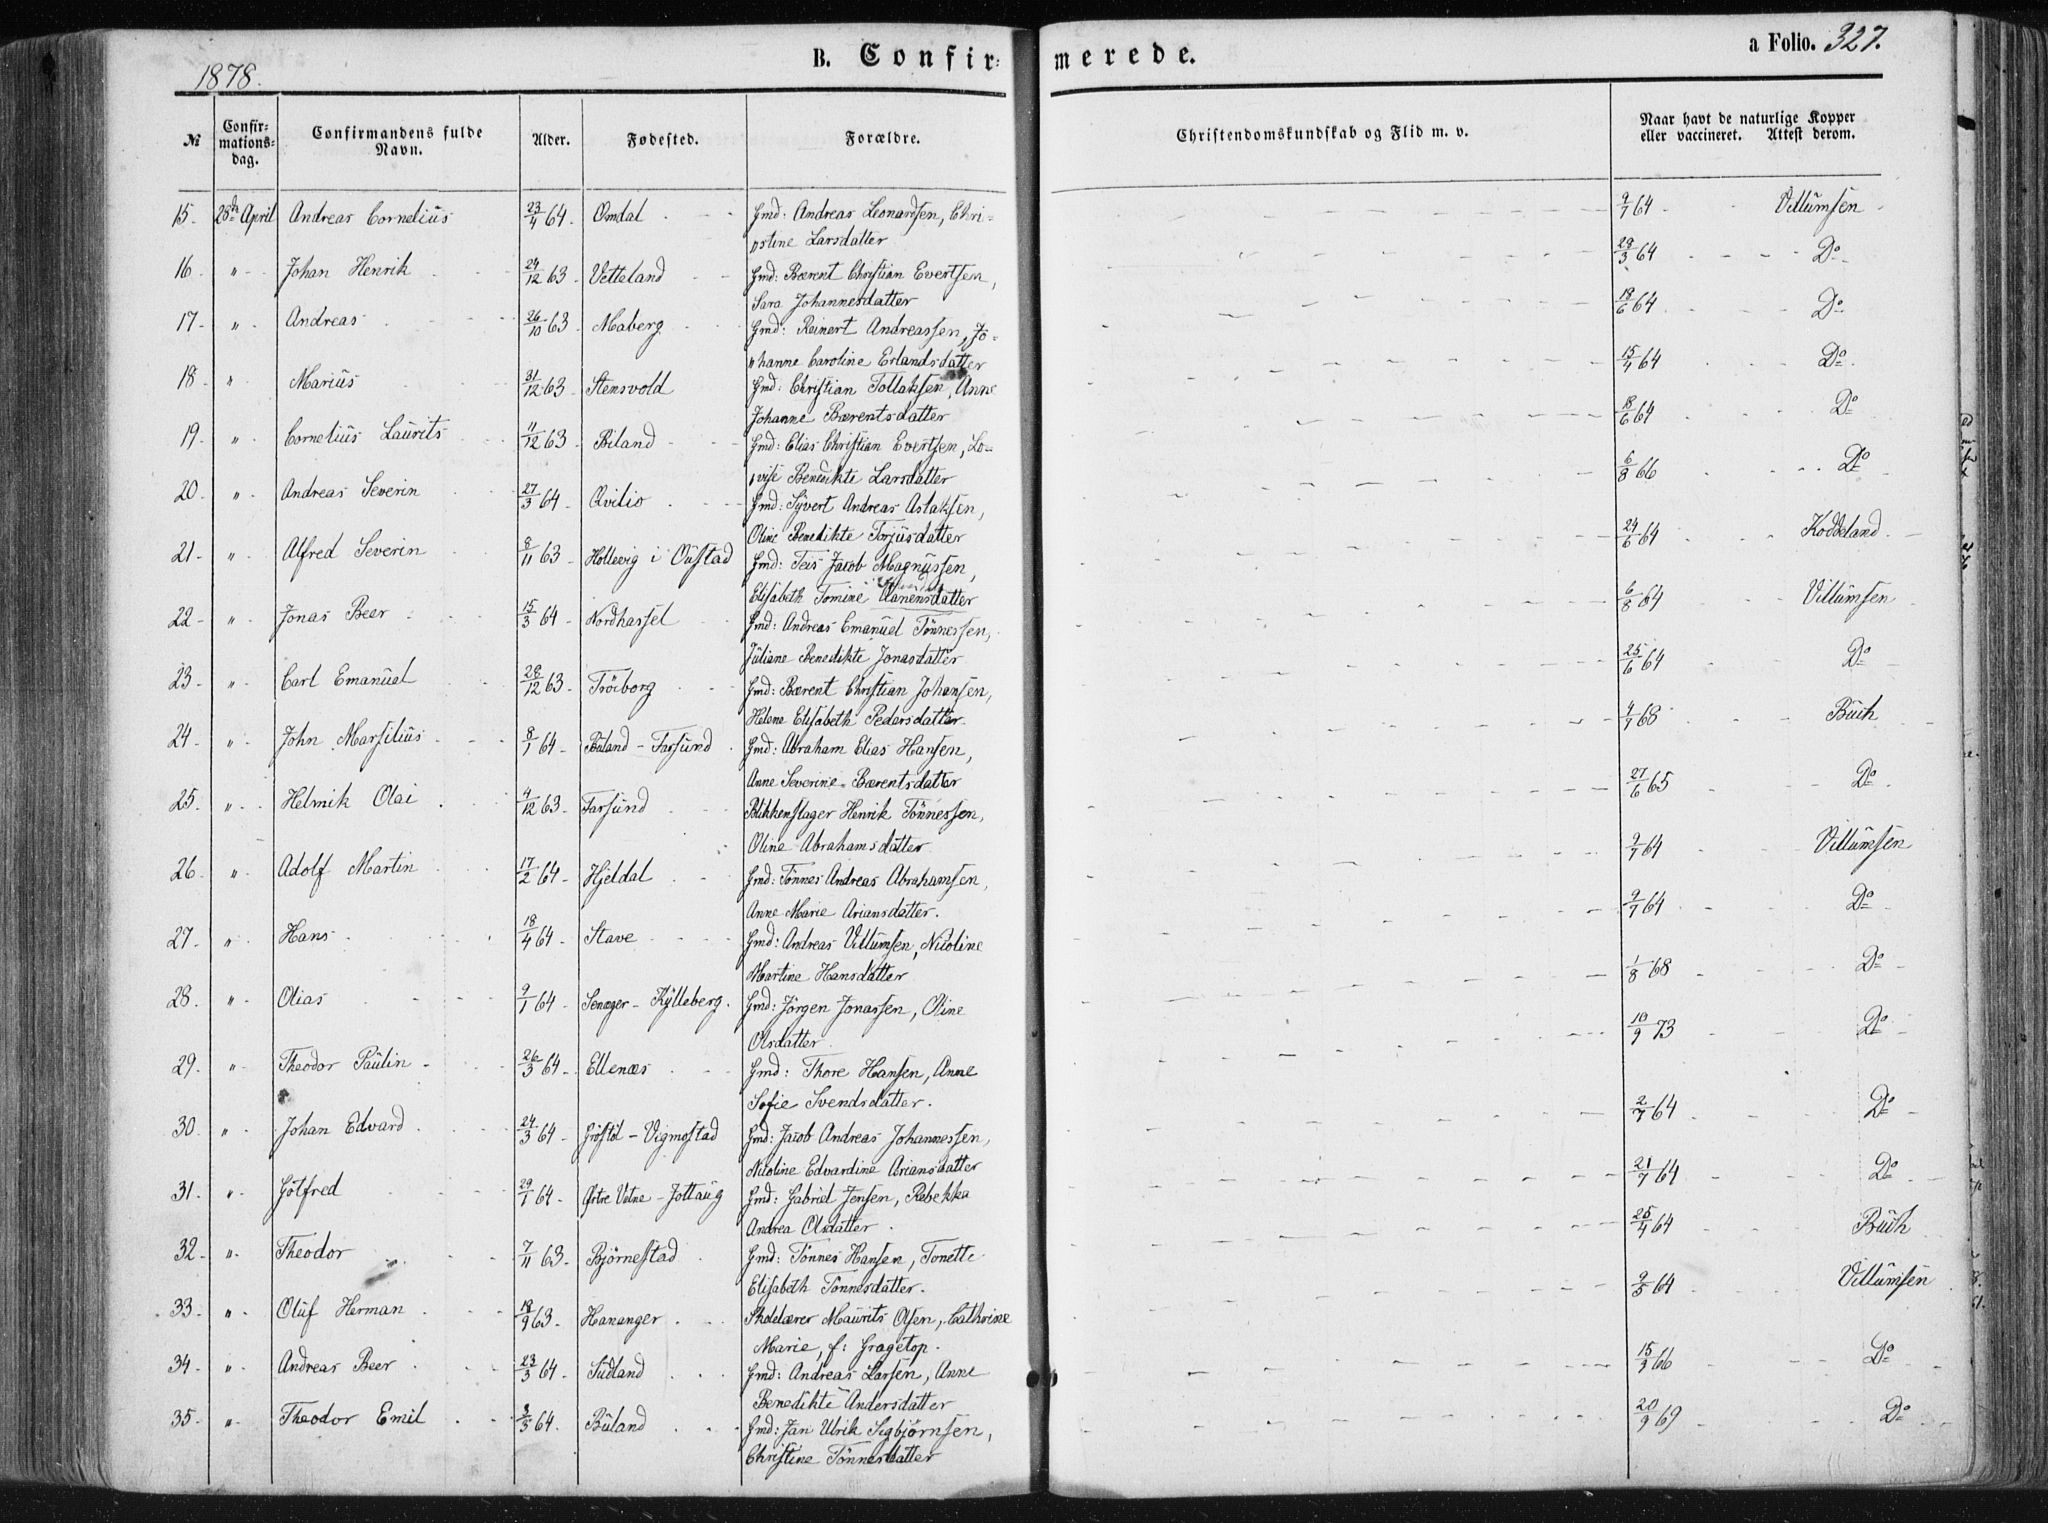 1878.
B. Confir-
merede.
a Folio. 327.
№
Confir-
mations-
dag.
Confirmandens fulde
Navn.
Alder.
Fødested.
Forældre.
Christendomskundskab og Flid m. v.
Naar havt de naturlige Kopper
eller vaccineret. Attest derom.
15. 28de April Andreas Cornelius 23/4 64. Omdal Gmd: Andreas Leonardsen, Chri-
"stine Larsdatter 9/7 64 Villumsen
16 " Johan Henrik 24/12 63 Vetteland Gmd: Bærent Christian Evertsen,
Sara Johannesdatter 29/3 64 Do
17 " Andreas 26/10 63 Maberg Gmd: Reinert Andreassen, Jo-
"hanne Caroline Erlandsdatter 18/6 64 Do
18 " Marius 31/12 63 Stensvold Gmd: Christian Tollaksen, Anne
Johanne Bærentsdatter 15/4 64 Do
19 " Cornelius Laurits 11/12 63 Biland Gmd: Elias Christian Evertsen, Lo-
"vise Benedikte Larsdatter 18/6 64 Do
20 " Andreas Severin 27/3 64 Qvilio Gmd: Sÿvert Andreas Aslaksen,
Oline Benedikte Torjusdatter 6/8 66 Do
21 " Alfred Severin 8/11 63 Hollevig i Oustad Gmd: Teis Jacob Magnussen,
Elisabeth Tomine Danensdatter 24/6 64 Koddeland
22 " Jonas Beer 15/3 64 Nordhassel Gmd: Andreas Emanuel Tönnessen,
Juliane Benedikte Jonasdatter 6/8 64 Villumsen
23 " Carl Emanuel 28/12 63 Tröiborg Gmd: Bærent Christian Johansen,
Helene Elisabeth Pedersdatter. 25/6 64 Do
24 " John Marsilius 8/1 64 Buland - Farsund Gmd: Abraham Elias Hansen,
Anne Severine Bærentsdatter 4/7 68 Buch
25. " Helmik Olai 4/12 63 Farsund Blikkenslager Henrik Tönnessen,
Oline Abrahamsdatter 27/6 65 Do
26 " Adolf Martin 17/2 64 Hjeldal Gmd: Tönnes Andreas Abrahamsen,
Anne Marie Ariansdatter. 9/7 64 Villumsen
27 " Hans 18/4 64 Stave Gmd: Andreas Villumsen, Nicoline
Martine Hansdatter 9/7 64 Do
28 " Olias 9/1 64 Senæger - Kÿlleberg. Gmd: Jörgen Jonassen, Oline
Olsdatter 1/8 68 Do
29 " Theodor Paulin 26/3 64 Ellenæs Gmd: Thore Hansen, Anne
Sofie Svendsdatter. 10/9 73 Do
30. " Johan Edvard 24/3 64 Gröstöl - Vigmostad Gmd: Jacob Andreas Johannessen,
Nicoline Edvardine Ariansdatter 2/7 64 Do
31 " Gotfred 29/1 64 Östre Vatne - Jottaug Gmd: Gabriel Jensen, Rebekka
Andrea Olsdatter 21/7 64 Do
32 " Theodor 7/11 63. Björnestad Gmd: Tönnes Hansen, Tonette
Elisabeth Tönnesdatter. 25/4 64 Buch
33 " Oluf Herman 18/9 63 Hananger Skolelærer Maurits Olsen, Cathrine
Marie, f: Gragetop. 9/5 64 Villumsen
34 " Andreas Beer 23/3 64 Sudland Gmd: Andreas Larsen, Anne
Benedikte Andersdatter 15/3 66 Do
35 " Theodor Emil 3/3 64. Buland Gmd: Jan Ulrik Sigbjørnsen,
Christine Tönnesdatter 20/9 69 Do